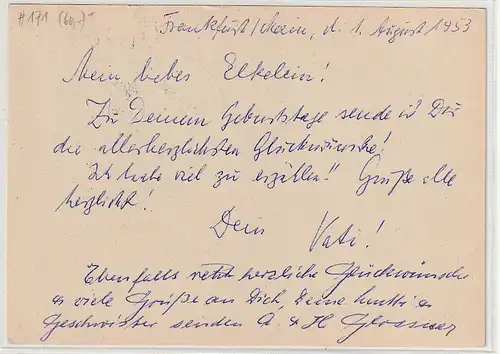 # 171 (60,-)
Frankfurt/Main, d. 1. August 1953
Mein liebes Elkelein!
Zu Deinem Geburtstage sende ich Dir
die allerherzlichsten Glückwünsche!
Ich habe viel zu erzählen!! Grüße alle
herzlichst!
Dein
Vati!
Ebenfalls recht herzliche Glückwünsche
u viele Grüße an Dich, Deine Mutti u
Geschwister senden A. & H